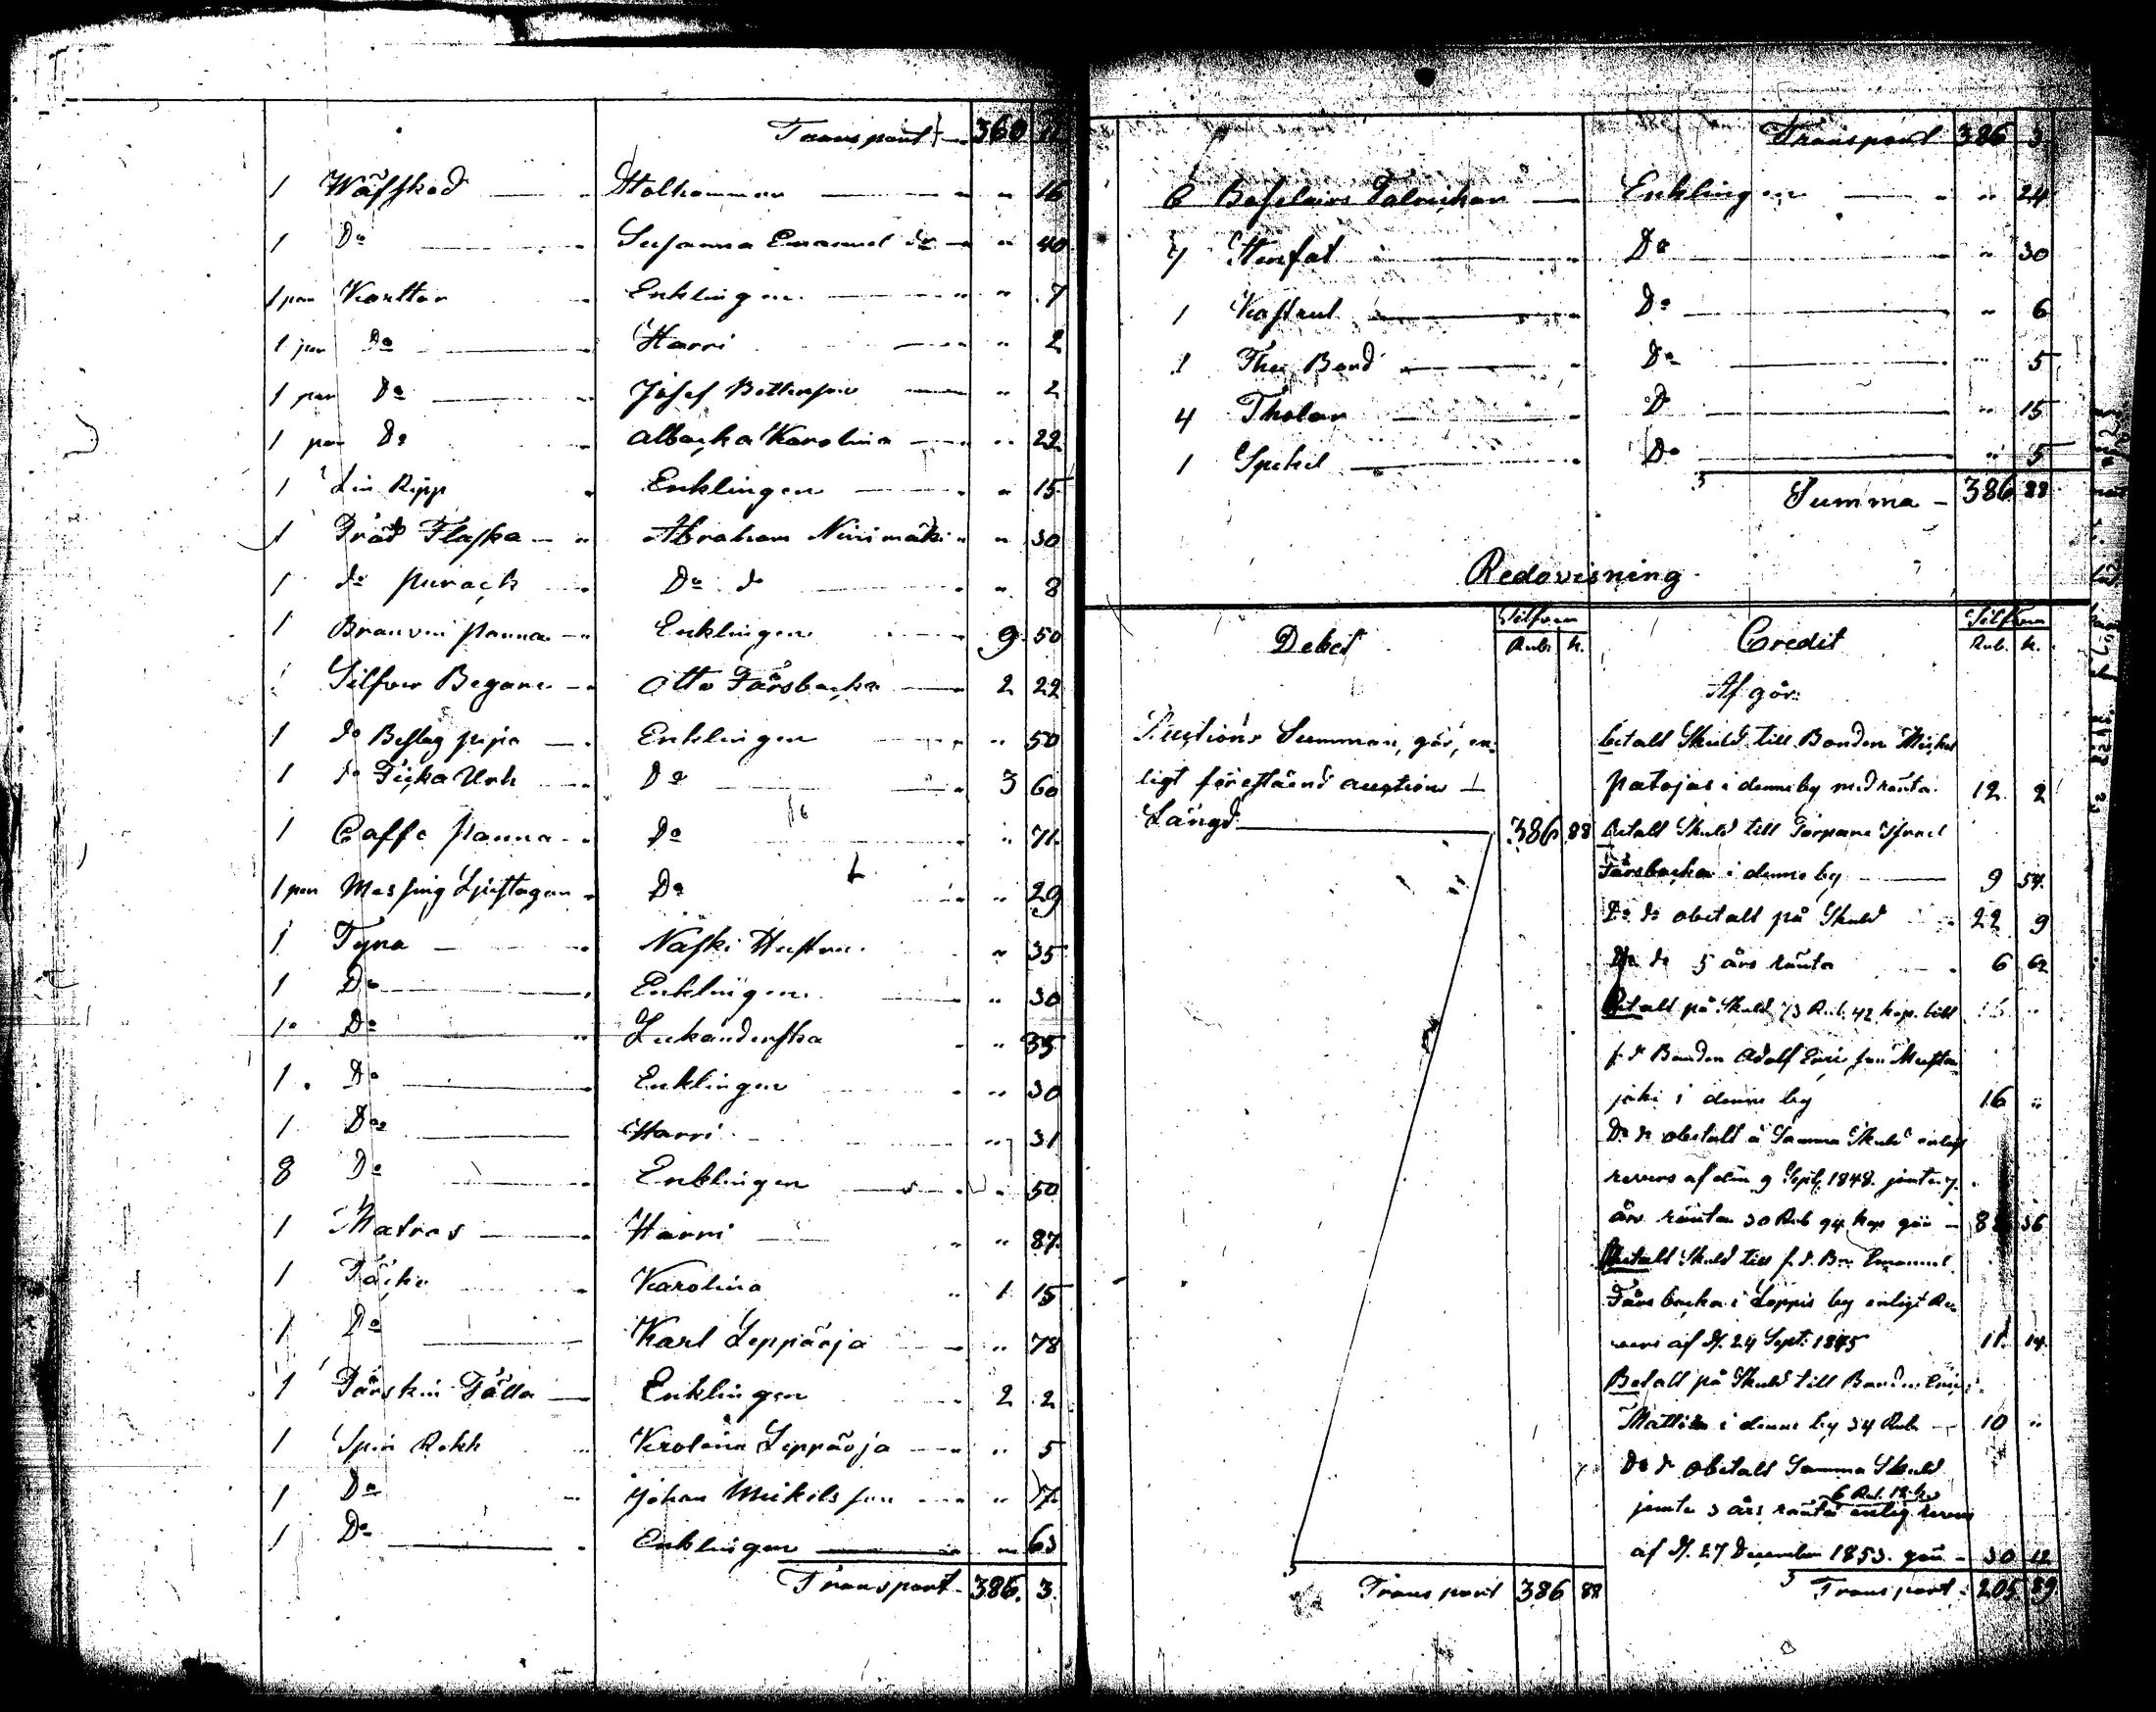 Transport 360 12
1 Wäfsked Holhammar " 16
1 Do Susanna Emanuel dr " 40
1 par Karttor Enklingen " 7
1 par Do Harri " 2
1 par Do Josef " 2
1 par Do Albacka Karolina " 22
1 Lin Ripp Enklingen " 15
1 Träd Flaska Abraham Niinimäki " 30
1 do Do do " 8
1 Branvin panna Enklingen 9 50
Silfver Begare Otto Färsbacka 2 22
1 do Beslag pipa Enklingen " 50
1 do Ficka Urh Do 3 60
1 Caffe panna Do " 71
1 par Messing Ljustagen Do " 29
1 Tyna Näski Hustru " 35
1 Do Enklingen " 30
1 Do " 35
1 Do Enklingen " 30
1 Do Harri " 31
8 Do Enklingen " 50
1 Matras Harri " 87
1 Täcke Karolina 1 15
1 Do Karl Leppäoja " 78
1 Fårskin Fälla Enklingen 2 2
1 Spin Rokk Karolina Leppäoja " 5
1 Do Johan Mickilsson " 17
1 Do Enklingen " 63
Transport 386 3
Transport 386 3
6 Talrickar Enklingen " 24
7 Stenfat Do " 30
1 Kastrul Do " 6
1 The Bord Do " 5
4 Tholar Do " 15
1 Spehel Do " 5
Summa 386 88
Redovisning
Debet Silfver Rub. k. Credit Silfver Rub. k.
Af går:
Auctions Summan, går, en-
ligt föreståend auctions
Längd 386 88
betalt Skuld till Bonden Mickel
Patojas i denne by med ränta 12 2
betalt Skuld till Torpare Israel
Färsbacka i denne by 9 54
Do do obetalt på Skuld 22 9
Do do 5 års ränta 6 62
Betalt på Skuld 73 Rub. 42 kop. till
f. d. Bonden Adolf Ericsson
i denne by 16 "
Do do obetalt å Samma Skuld enligt
revers af den 9 Sept. 1848 jemte 7
års ränta 30 Rub 94 kop gör 36
Betalt Skuld till f. d. Bn Emanuel
Färsbacka i Loppis by enligt Re
vers af d. 24 Sept. 1845 11 14
Betalt på Skuld till Bonden Eric
Mattila i denne by 34 Rub 10 "
Do do obetalt Samma Skuld
6 Rub. 12 k.
jemte 3 års ränta enligt revers
af d. 27 December 1853 gör 30 12
Transport 386 88
Transport 205 89